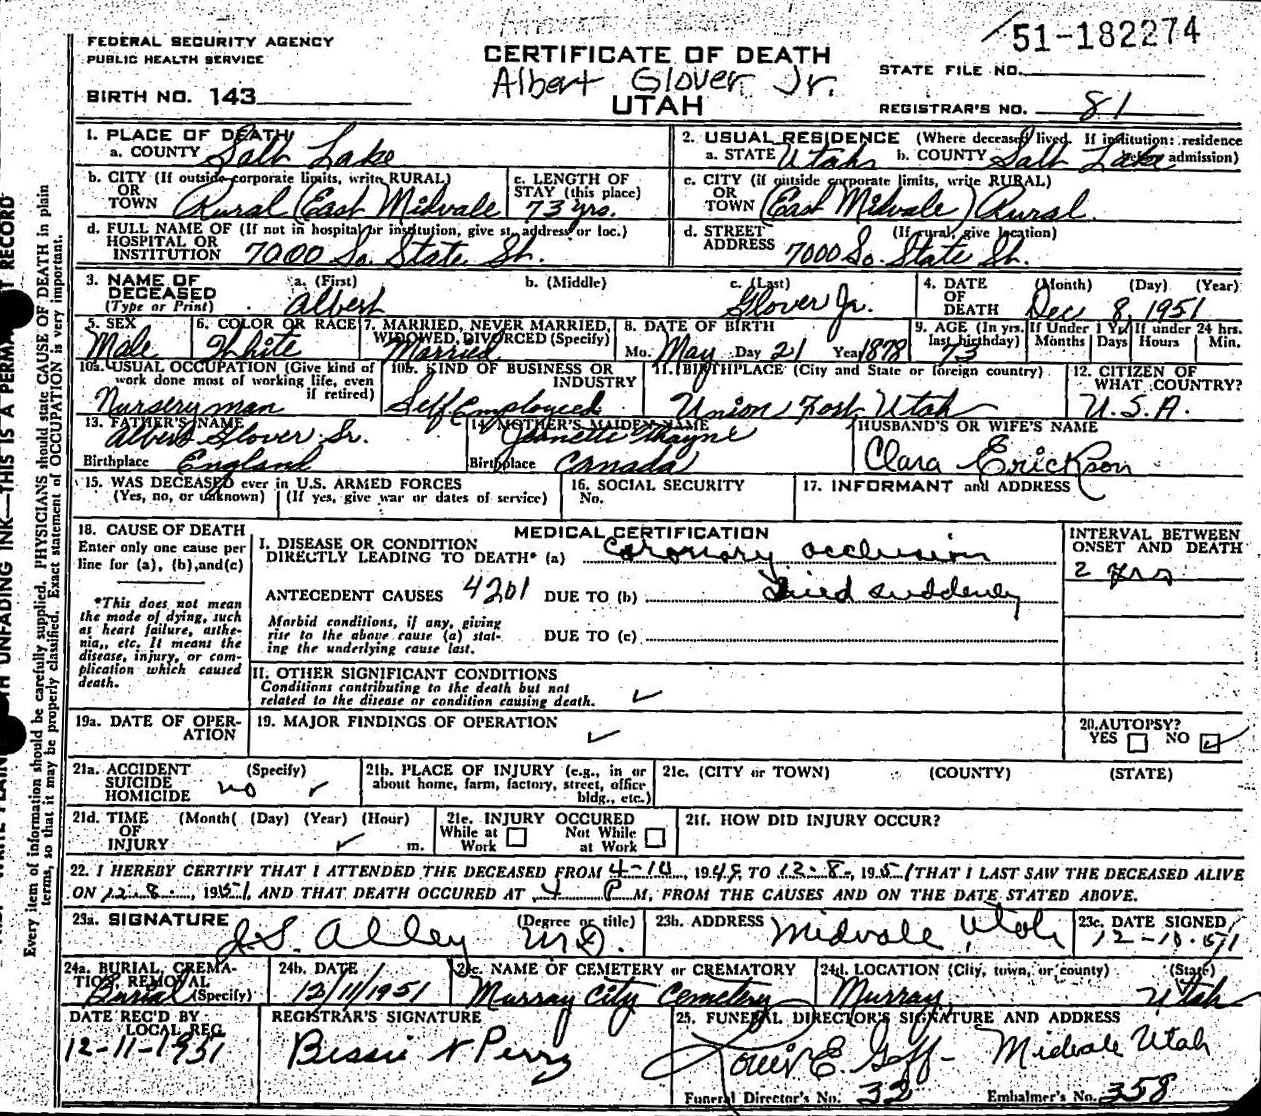 51-182274
FEDERAL SECURITY AGENCY
PUBLIC HEALTH SERVICE
CERTIFICATE OF DEATH
Albert Glover Jr.
UTAH
STATE FILE NO.
BIRTH NO. 143
REGISTRAR'S NO. 81
1. PLACE OF DEATH
a. COUNTY Salt Lake
2. USUAL RESIDENCE (Where deceased lived. If institution: residence
a. STATE Utah b. COUNTY Salt Lake admission)
b. CITY (If outside corporate limits, write RURAL)
OR
TOWN Rural (East Midvale
c. LENGTH OF
STAY (this place)
73 yrs.
c. CITY (if outside corporate limits, write RURAL)
OR
TOWN (East Midvale) Rural
d. FULL NAME OF (If not in hospital or institution, give st. address or loc.)
HOSPITAL OR
INSTITUTION 7000 So. State St.
d. STREET (If rural, give location)
ADDRESS 7000 So. State St.
3. NAME OF DECEASED
(Type or Print)
a. (First)
Albert
b. (Middle)
c. (Last)
Glover Jr.
4. DATE OF DEATH
(Month) (Day) (Year)
Dec 8, 1951
5. SEX
Male
6. COLOR OR RACE
White
7. MARRIED, NEVER MARRIED,
WIDOWED, DIVORCED (Specify)
Married
8. DATE OF BIRTH
Mo. May Day 21 Year 1878
9. AGE (In yrs.
last birthday)
73
If Under 1 Yr.
Months Days
If under 24 hrs.
Hours Min.
10a. USUAL OCCUPATION (Give kind of
work done most of working life, even
if retired)
Nurseryman
10b. KIND OF BUSINESS OR
INDUSTRY
Self Employed
11. BIRTHPLACE (City and State or foreign country)
Union Fort, Utah
12. CITIZEN OF
WHAT COUNTRY?
U.S.A.
13. FATHER'S NAME
Albert Glover Sr.
Birthplace England
14. MOTHER'S MAIDEN NAME
Jeanette Thayne
Birthplace Canada
HUSBAND'S OR WIFE'S NAME
Clara Erickson
15. WAS DECEASED ever in U.S. ARMED FORCES
(Yes, no, or unknown) (If yes, give war or dates of service)
16. SOCIAL SECURITY
No.
17. INFORMANT and ADDRESS
18. CAUSE OF DEATH
Enter only one cause per
line for (a), (b), and (c)
*This does not mean
the mode of dying, such
as heart failure, asthe-
nia, etc. It means the
disease, injury, or com-
plication which caused
death.
MEDICAL CERTIFICATION
I. DISEASE OR CONDITION
DIRECTLY LEADING TO DEATH* (a) Coronary occlusion
ANTECEDENT CAUSES 4201 DUE TO (b) Died suddenly
Morbid conditions, if any, giving
rise to the above cause (a) stat-
ing the underlying cause last.
DUE TO (c)
INTERVAL BETWEEN
ONSET AND DEATH
2 yrs
II. OTHER SIGNIFICANT CONDITIONS
Conditions contributing to the death but not
related to the disease or condition causing death.
19a. DATE OF OPER-
ATION
19. MAJOR FINDINGS OF OPERATION
20. AUTOPSY?
YES NO
21a. ACCIDENT (Specify)
SUICIDE
HOMICIDE no
21b. PLACE OF INJURY (e.g., in or
about home, farm, factory, street, office
bldg., etc.)
21c. (CITY or TOWN) (COUNTY) (STATE)
21d. TIME (Month) (Day) (Year) (Hour)
OF
INJURY m.
21e. INJURY OCCURED
While at Work Not While at Work
21f. HOW DID INJURY OCCUR?
22. I HEREBY CERTIFY THAT I ATTENDED THE DECEASED FROM 4-10, 1949 TO 12-8, 1951 THAT I LAST SAW THE DECEASED ALIVE
ON 12-8, 1951, AND THAT DEATH OCCURED AT 4 P M, FROM THE CAUSES AND ON THE DATE STATED ABOVE.
23a. SIGNATURE (Degree or title)
J.S. Alley M.D.
23b. ADDRESS
Midvale, Utah
23c. DATE SIGNED
12-10-51
24a. BURIAL, CREMA-
TION, REMOVAL
Burial (Specify)
24b. DATE
12/11/1951
24c. NAME OF CEMETERY or CREMATORY
Murray City Cemetery
24d. LOCATION (City, town, or county) (State)
Murray Utah
DATE REC'D BY
LOCAL REG.
12-11-1951
REGISTRAR'S SIGNATURE
Bessie N Perry
25. FUNERAL DIRECTOR'S SIGNATURE AND ADDRESS
Louis E. Goff- Midvale Utah
Funeral Director's No. 32 Embalmer's No. 358
UNFADING INK—THIS IS A PERMA T RECORD
Every item of information should be carefully supplied. PHYSICIANS should state CAUSE OF DEATH in plain
terms, so that it may be properly classified. Exact statement of OCCUPATION is very important.